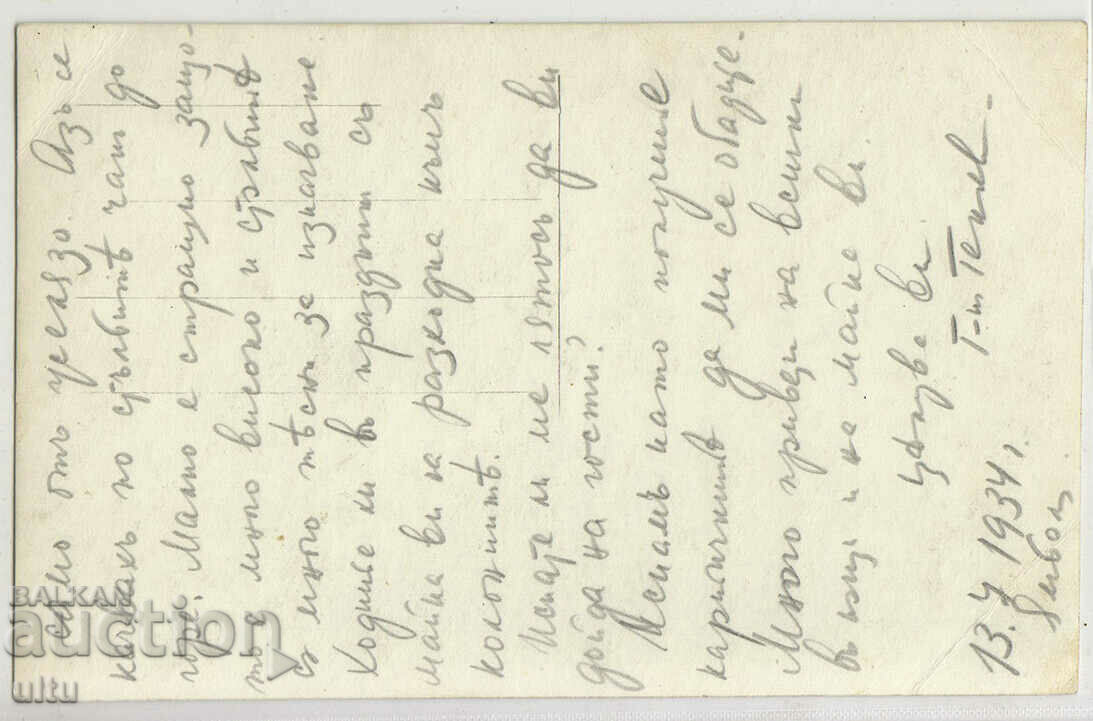 само отъ желязо. Азъ се
качвахъ по стълбитѣ чакъ до
горѣ. Малко е страшно защо-
то е много високо и стълбитѣ
с много тѣсни за излизане
Ходите ли въ праздни съ
майка ви на разходка къмъ
колонитѣ.
Искате ли не лятосъ да ви
дойда на гости?
Искамъ като получите
картичкитѣ да ми се обадите.
Много привети на всички
въ кѫщи и на майка ви.
Цѣлува ви
13. 1934 г.
BALKAN
auction
ultu